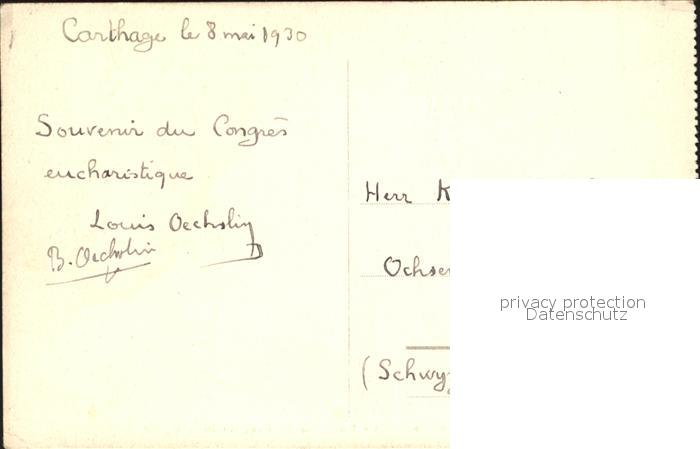 Carthage le 8 mai 1930
Souvenir du Congrès
eucharistique
Louis Oechslin
B. Oechslin
Herr K
Ochsen
(Schwyz
privacy protection
Datenschutz